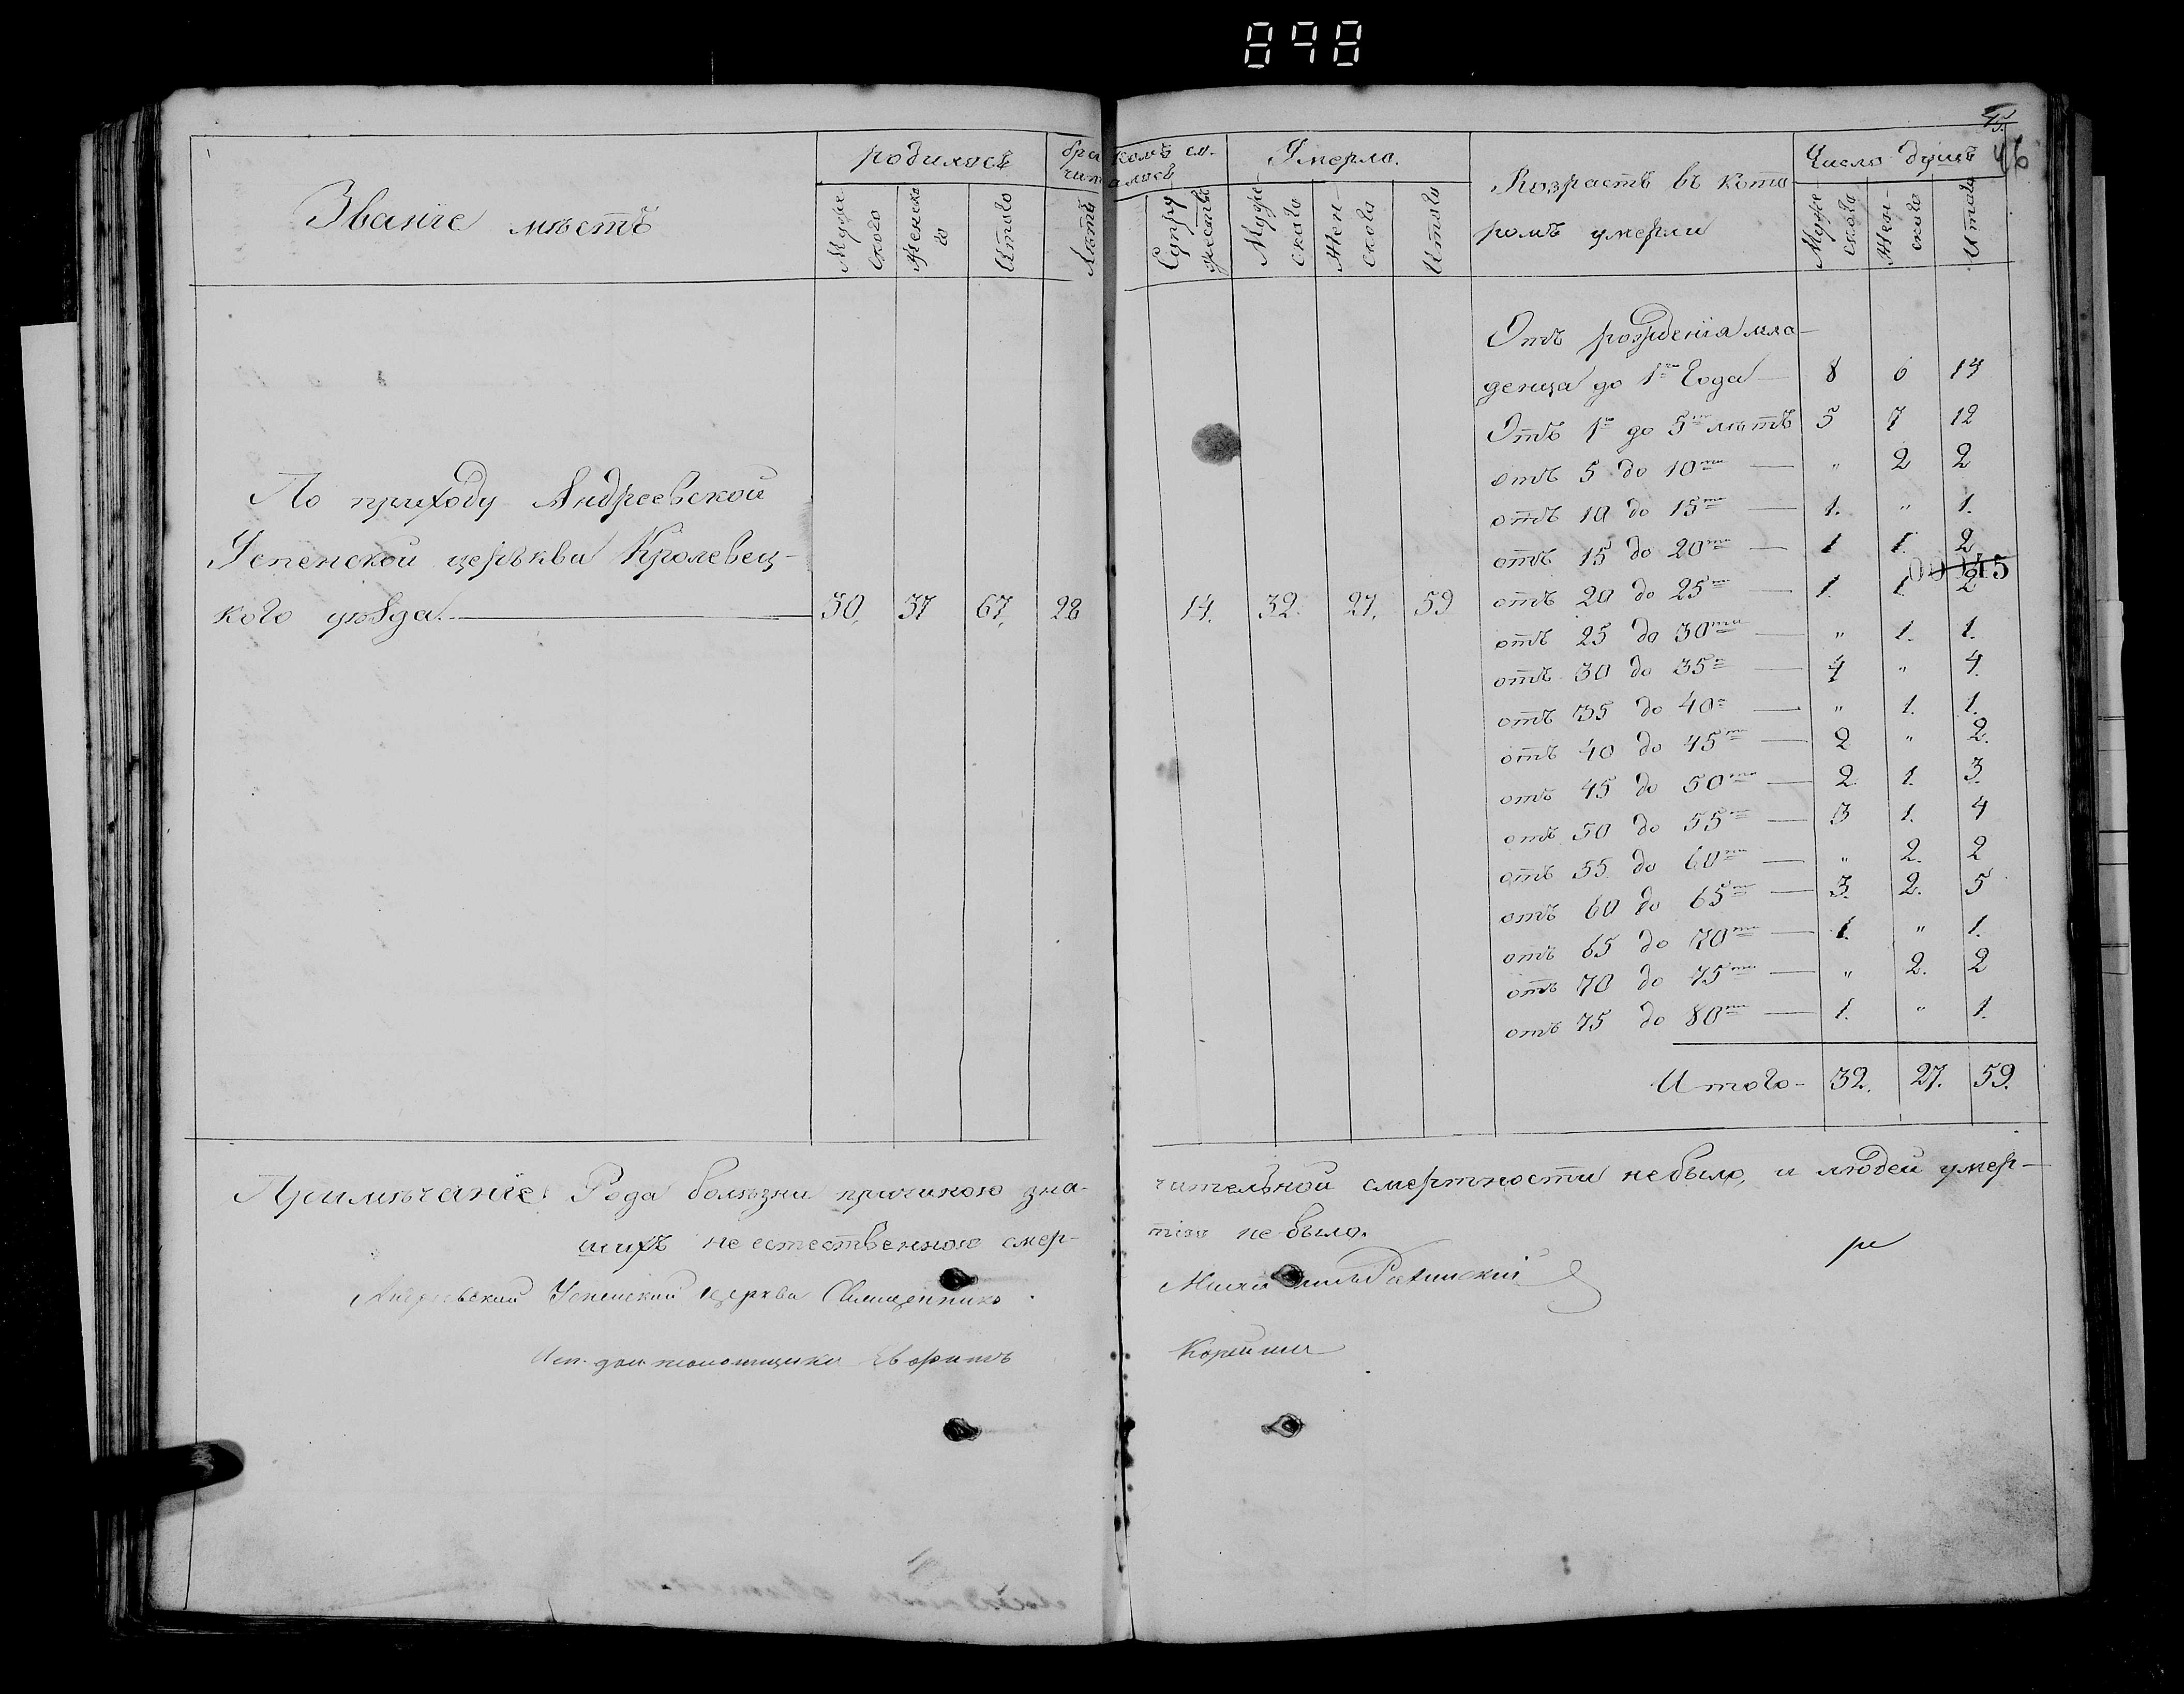 898
45
46
Званіе мѣстъ
родилось
Мужескаго
Женскаго
Итого
бракомъ сочиталось
Лѣтъ
Супружествъ
Умерло.
Мужескаго
Женскаго
Итого
Возрастъ въ которомъ умерли
Число душъ
Мужескаго
Женскаго
Итого
По приходу Андреевской
Успенской церьква Кролевец-
кого уѣзда. 30. 37 67. 28 14. 32. 27. 59
Отъ рожденія мла-
денца до 1го Года 8 6 14
Отъ 1го до 5ти лѣтъ 5 7 12
отъ 5 до 10ти „ 2 2
отъ 10 до 15ти 1. „ 1.
отъ 15 до 20ти 1 1. 2
00045
отъ 20 до 25ти 1. 1. 2
отъ 25 до 30ти „ 1. 1.
отъ 30 до 35ти 4 „ 4.
отъ 35 до 40 „ 1. 1.
отъ 40 до 45ти 2 „ 2.
отъ 45 до 50ти 2 1. 3.
отъ 50 до 55ти 3 1. 4
отъ 55 до 60ти „ 2. 2
отъ 60 до 65ти 3. 2. 5
отъ 65 до 70ти 1. „ 1.
отъ 70 до 75ти „ 2. 2
отъ 75 до 80ти 1. „ 1.
Итого - 32. 27. 59.
Примѣчаніе: Рода болѣзни причиною зна-
чительной смертности небыло, и людей умер-
шихъ не естественною смер-
тію не было.
Андреевский Успенский Церкви Священникъ